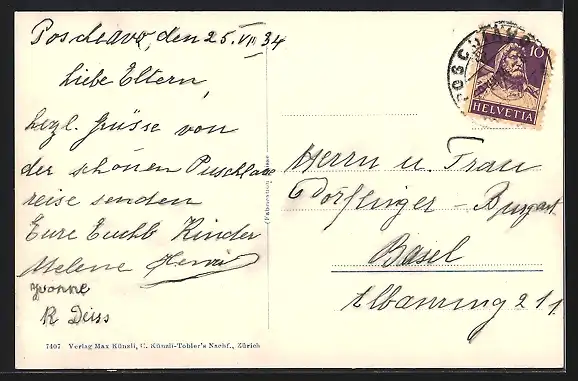 Poschiavo, den 25. VII 34
Liebe Eltern,
herzl. Grüsse von
der schönen Puschlav
reise senden
Eure Kinder
Helene Henri
Yvonne
R Deiss
7407 Verlag Max Künzli, C. Künzli-Tobler's Nachf., Zürich
10
HELVETIA
Herrn u. Frau
Dörflinger - Burgart
Basel
Albanring 211